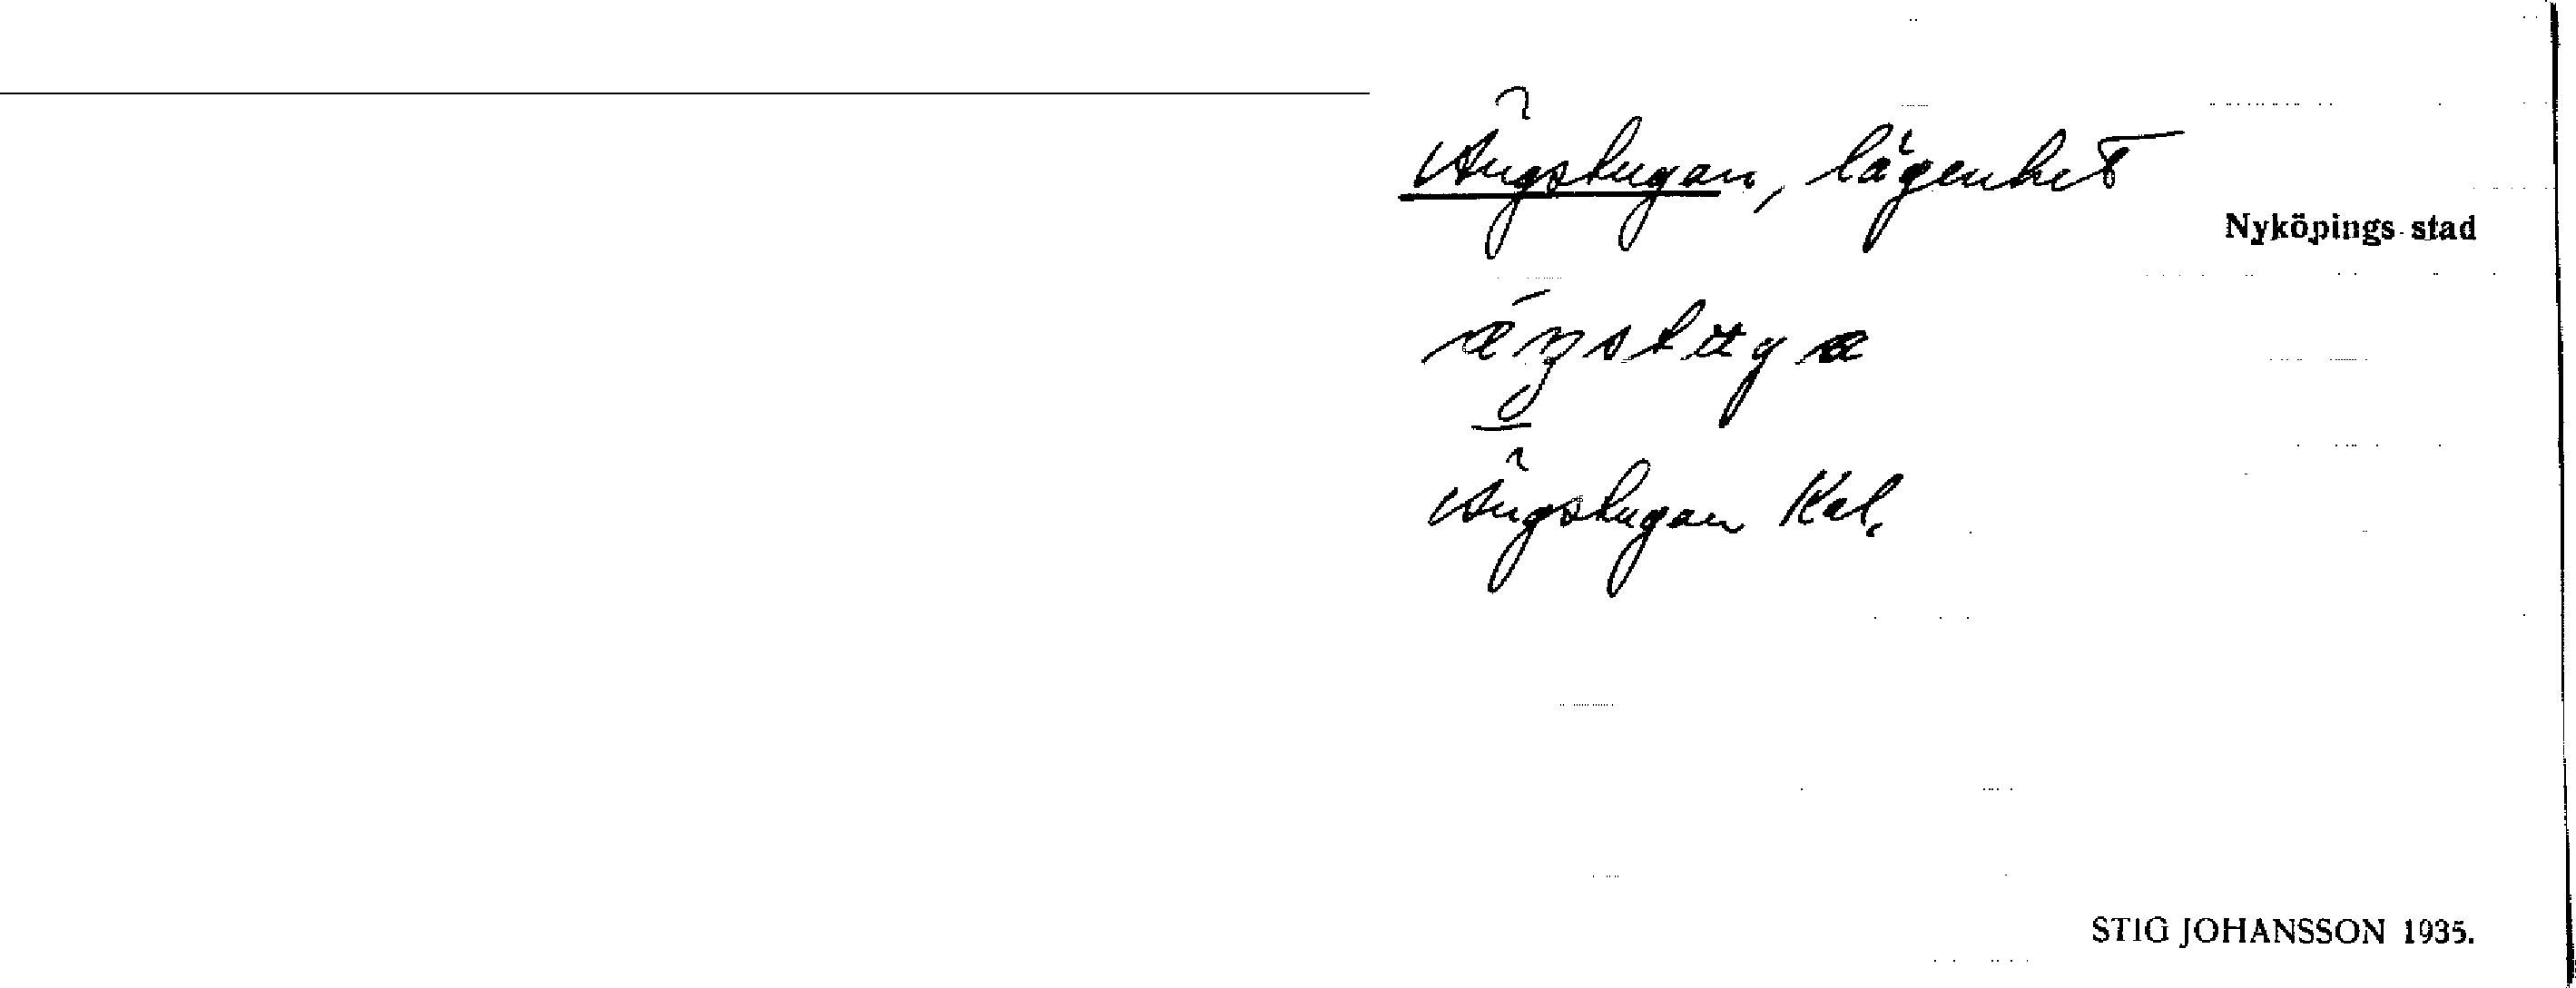 Ängstugan, lägenhet
Nyköpings stad
Ängstugan Kal.
STIG JOHANSSON 1935.